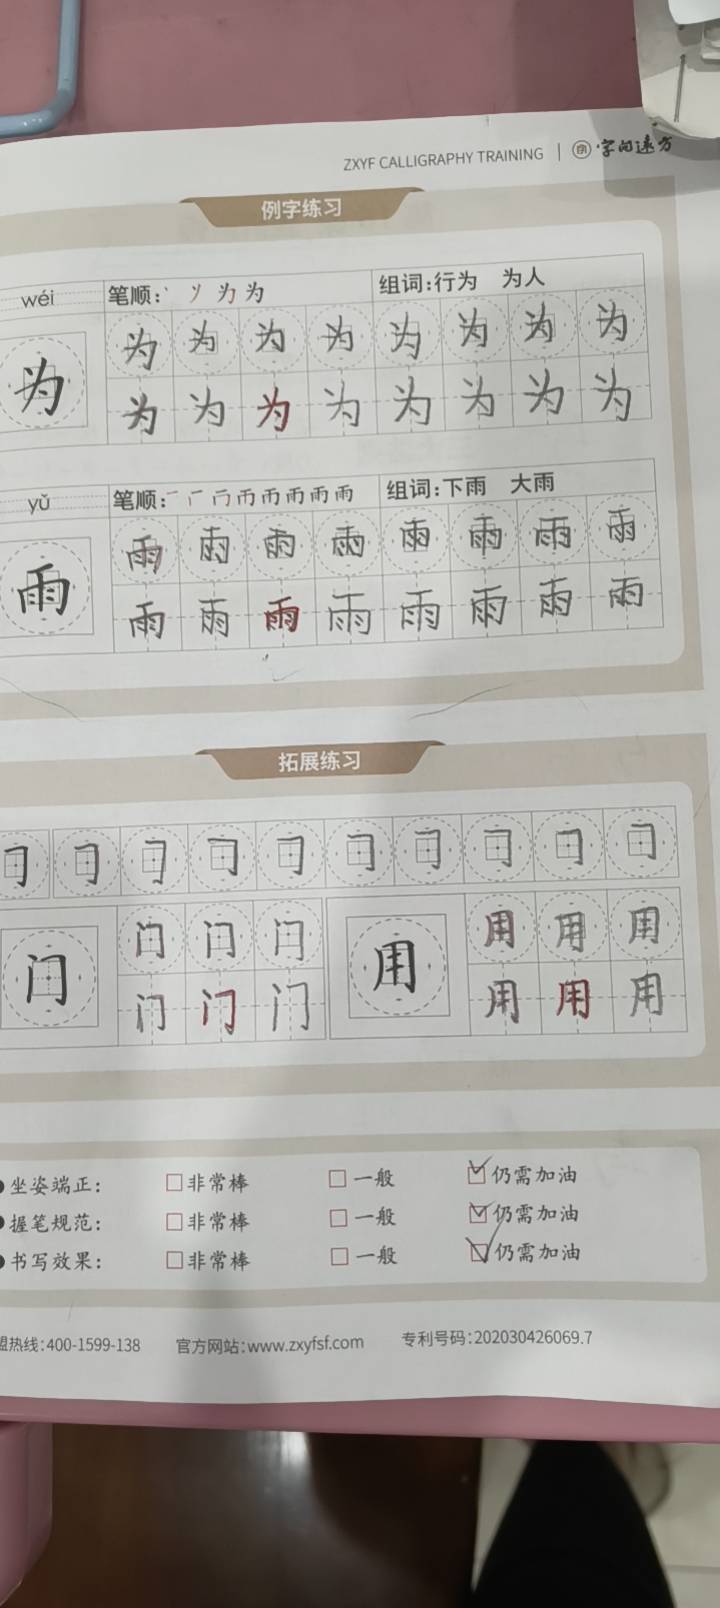 ZXYF CALLIGRAPHY TRAINING | 字间远方
例字练习
wéi 笔顺: 丶 丷 为 为 组词:行为 为人
为 为 为 为 为 为 为 为 为
为 为 为 为 为 为 为 为
yǔ 笔顺: 雨 雨 组词:下雨 大雨
雨 雨 雨 雨 雨 雨 雨 雨 雨
雨 雨 雨 雨 雨 雨 雨 雨
拓展练习
门 门 门 门 用 用 用 用
门 门 门 用 用 用
坐姿端正: 非常棒 一般 仍需加油
握笔规范: 非常棒 一般 仍需加油
书写效果: 非常棒 一般 仍需加油
盟热线:400-1599-138 官方网站:www.zxyfsf.com 专利号码:202030426069.7